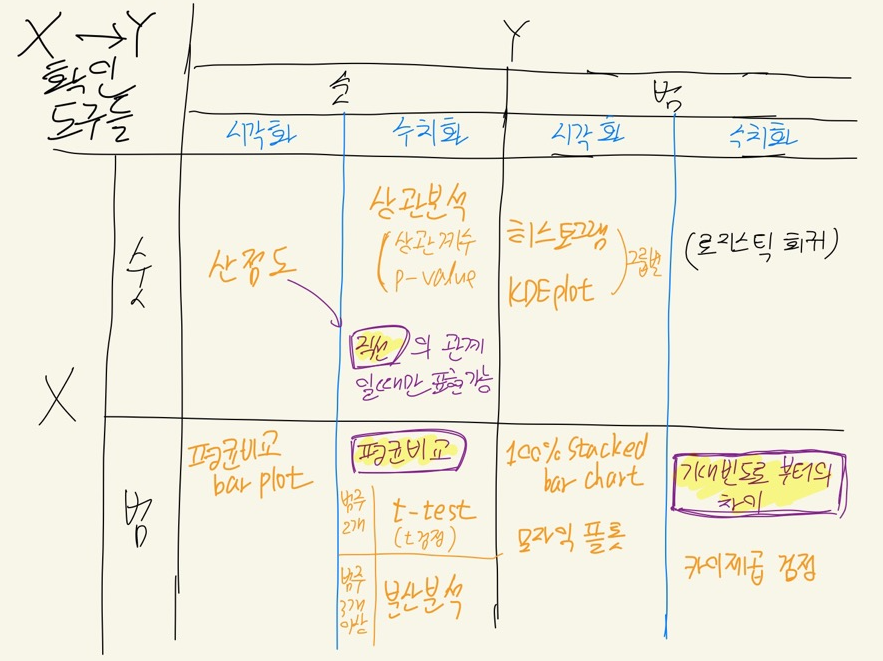 X ↔ Y
확인
도구들
Y
수
범
시각화
수치화
시각화
수치화
X
수
산점도
상관분석
(상관계수
p-value
직선의 관계
일때만 표현가능
히스토그램
KDEplot
) 그룹별
(로지스틱 회귀)
범
평균비교
bar plot
평균비교
범주
2개
t-test
(t검정)
범주
3개
이상
분산분석
100% Stacked
bar chart
모자익 플롯
기대빈도로 부터의
차이
카이제곱 검정